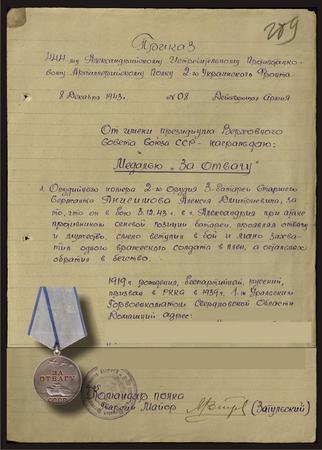 209
Приказ
Александрийскому Истребительному Противотанко-
вому Артиллерийскому Полку 2-го Украинского Фронта
8 Декабря 1943 г. №08 Действующая Армия
От имени президиума Верховного
Совета Союза ССР - награждаю:
Медалью „За Отвагу"
1. Орудийного номера 2-го орудия 3-батареи Старшего
Сержанта Анисимова Алексея Дмитриевича, за
то, что он в бою 5.12.43 г. в г. Александрия при атаке
противником огневой позиции батареи, проявляя отвагу
и мужество, смело вступил в бой и лично захва-
тил одного вражеского солдата в плен, а остальных
обратил в бегство.
1919 г. рождения, беспартийный, русский,
призван в РККА в 1939 г. 1-м Уральским
Горвоенкоматом Свердловской Области
Домашний адрес:
ЗА
ОТВАГУ
СССР
Командир полка
Гвардии Майор (Затульский)